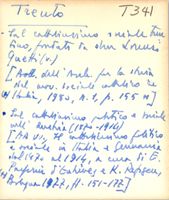 Trento T341
- Sul cattolicesimo sociale trentino, fondato da don Lorenzo
Guetti (v.)
[Boll. dell'Arch. per la storia
del mov. sociale cattolico in
Italia, 1980, n. 1, p. 155
Sul cattolicesimo politico e sociale
nell'Austria (1870-1914)
[AA.VV., Il cattolicesimo politico
e sociale in Italia e Germania
dal 1870 al 1914, a cura di E.
Passerin d'Entrèves e K. Repgen,
Bologna 1977, p. 151-177]